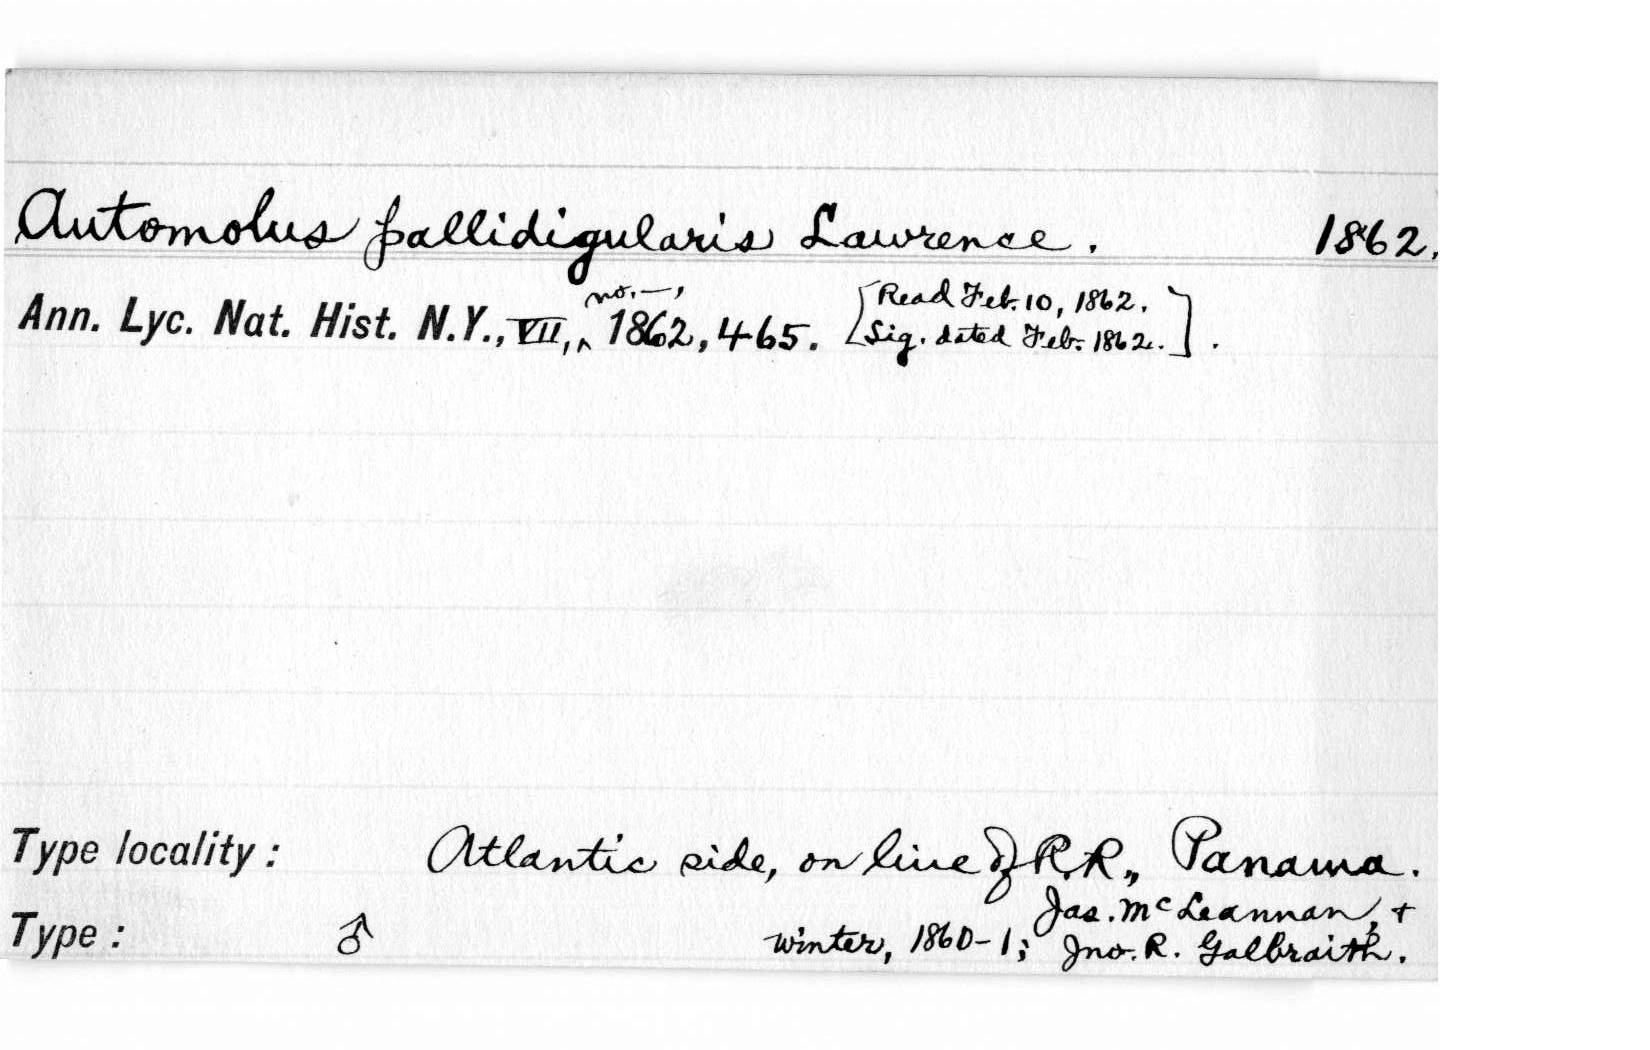 Automolus pallidigularis Lawrence. 1862.
Ann. Lyc. Nat. Hist. N.Y., VII, no. —, 1862, 465. [Read Feb. 10, 1862. Sig. dated Feb. 1862.].
Type locality: Atlantic side, on line of R.R., Panama.
Jas. McLeannan, +
Type: ♂ winter, 1860-1; Jno. R. Galbraith.